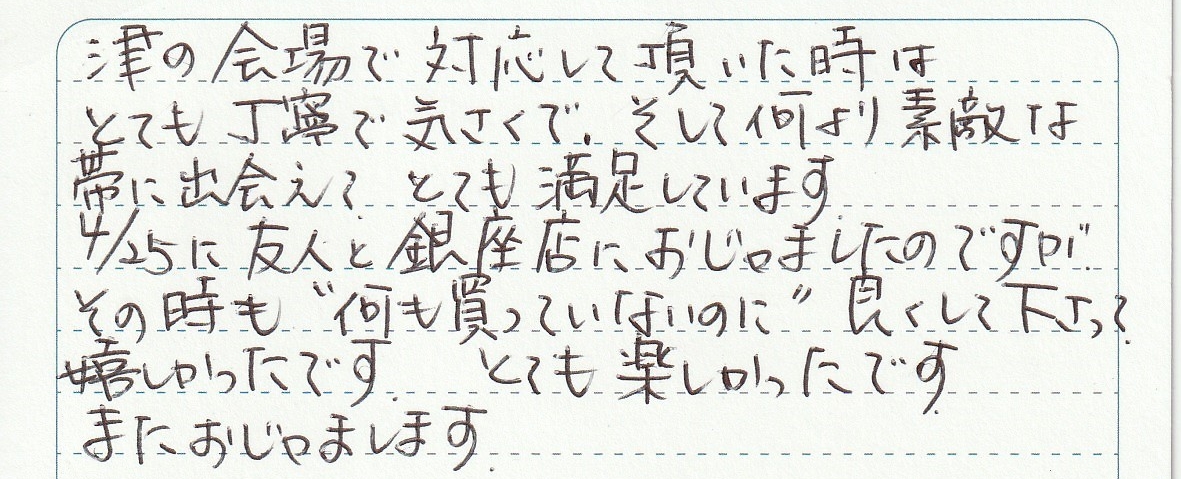 津の会場で対応して頂いた時は
とても丁寧で気さくで、そして何より素敵な
帯に出会えて、とても満足しています
4/25に友人と銀座店におじゃましたのですが、
その時も“何も買っていないのに”良くして下さって、
嬉しかったです。とても楽しかったです。
またおじゃまします。